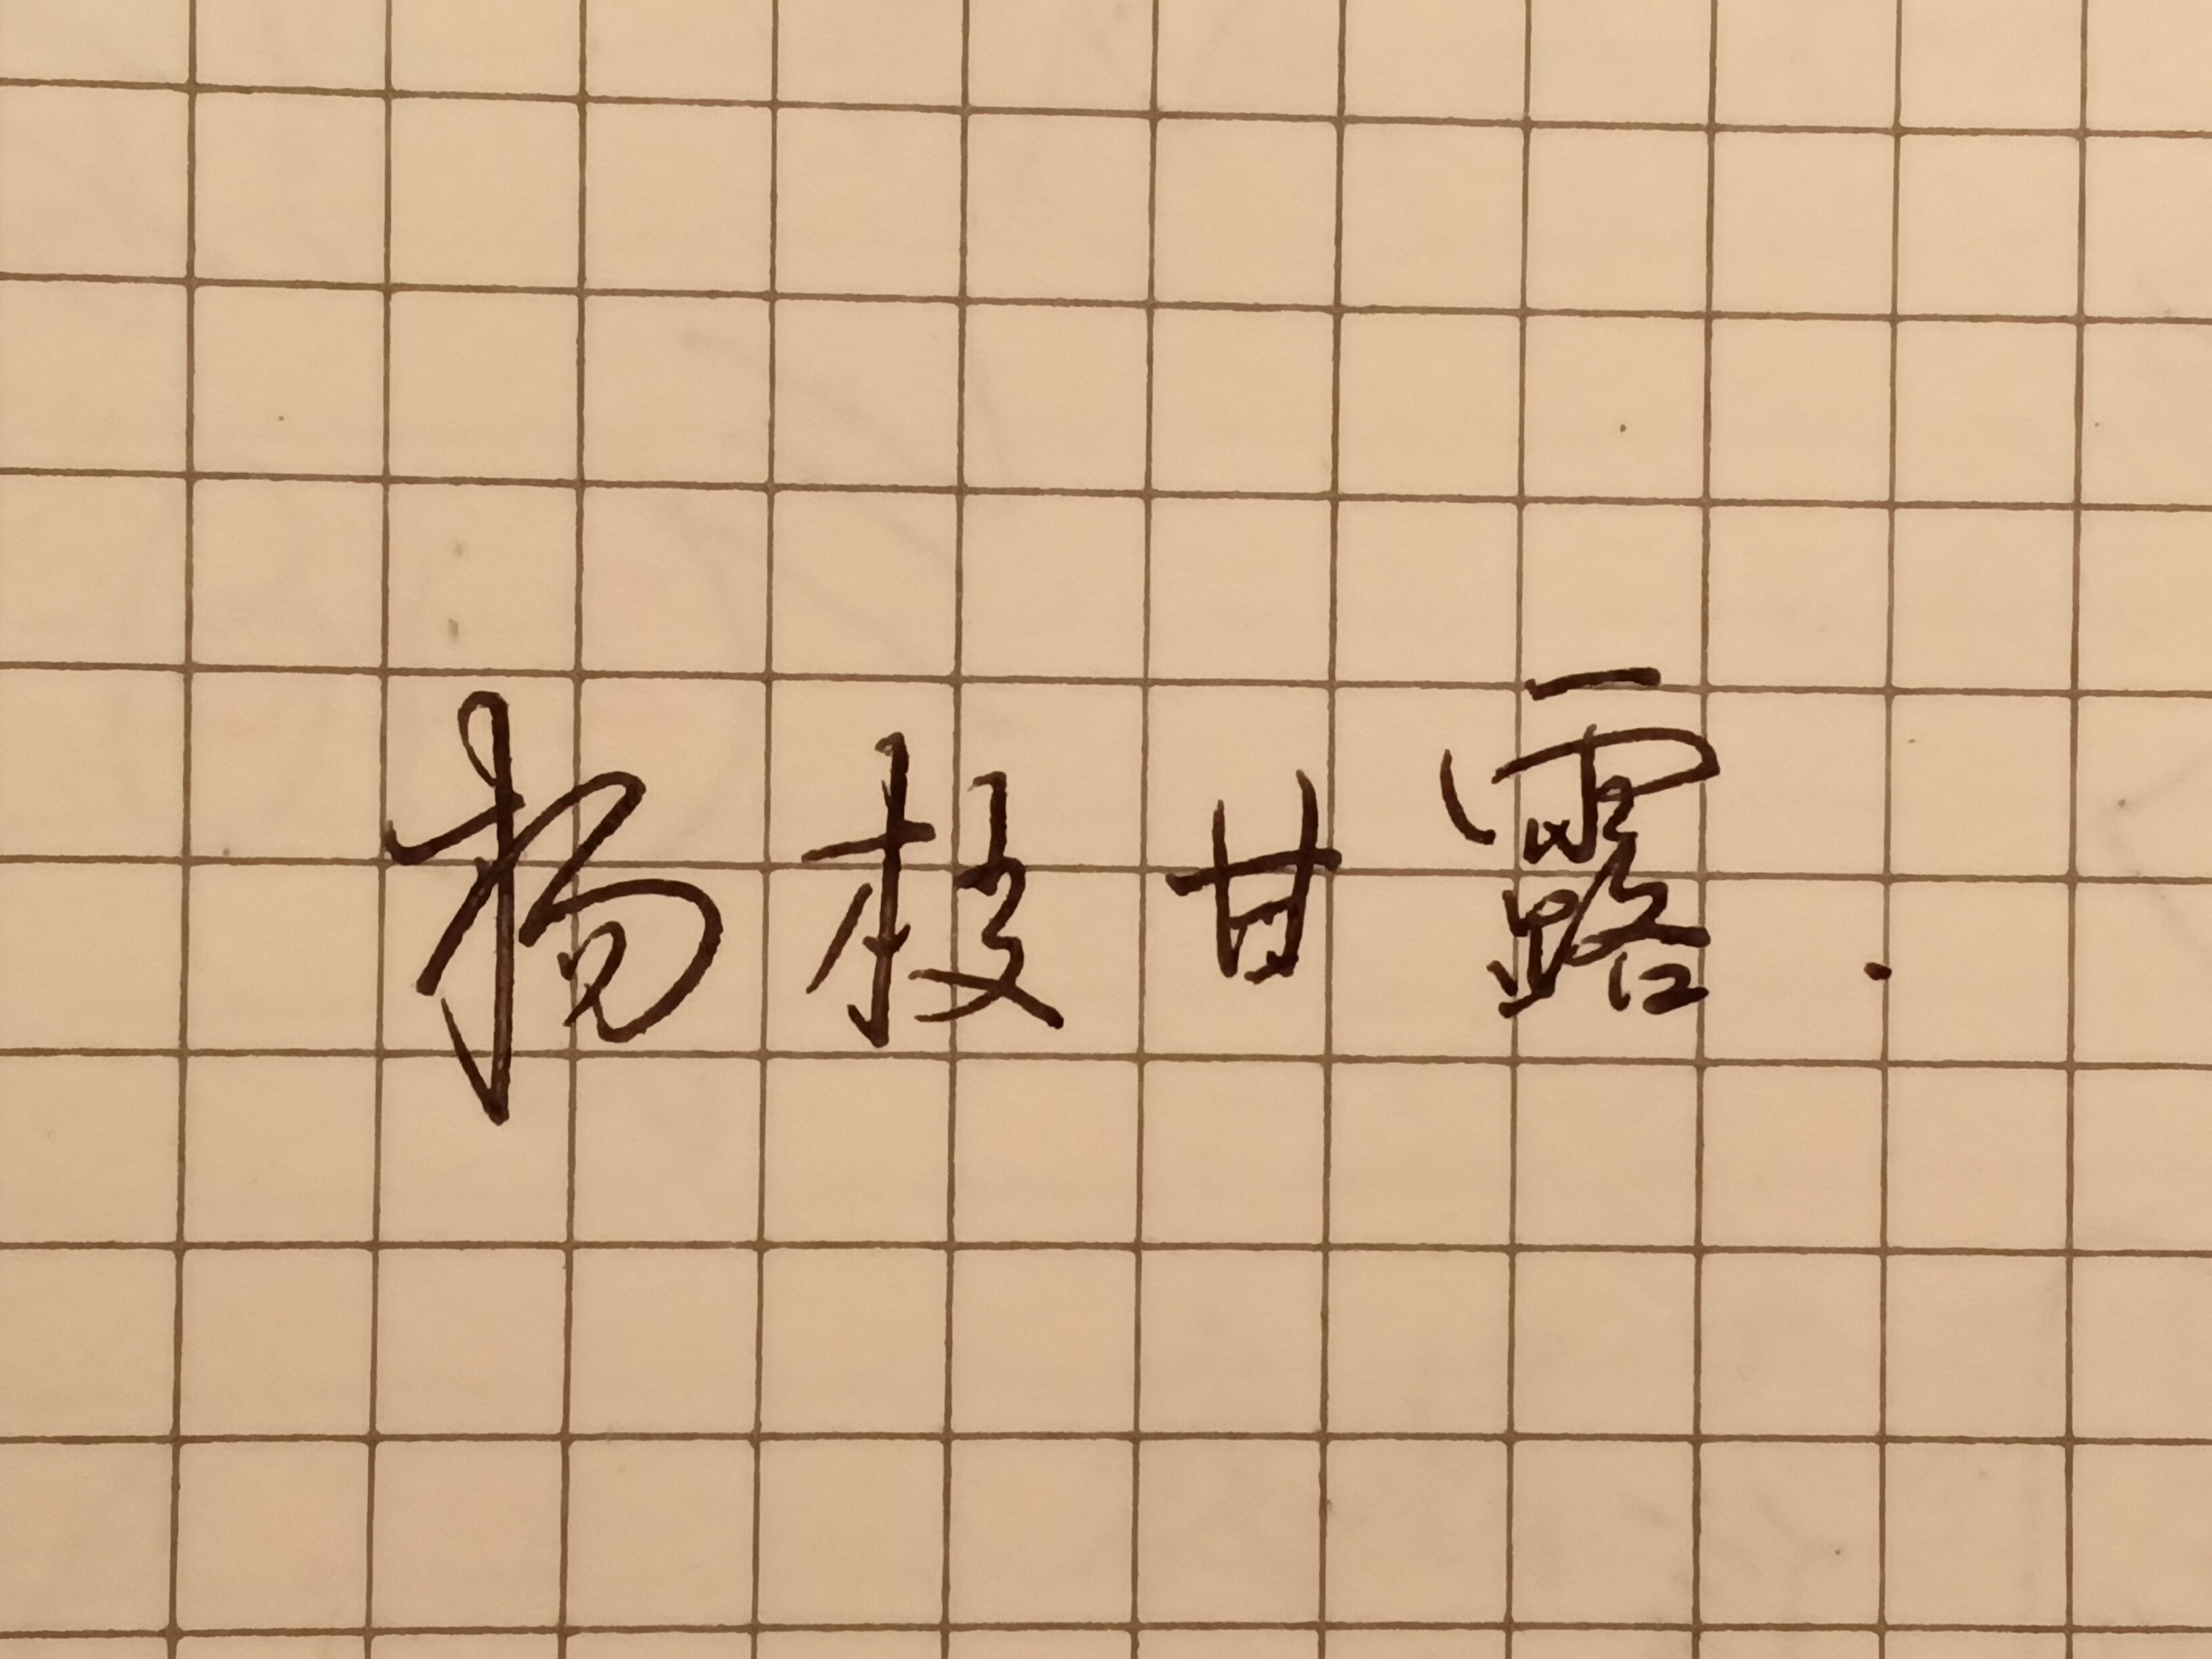 杨枝甘露.